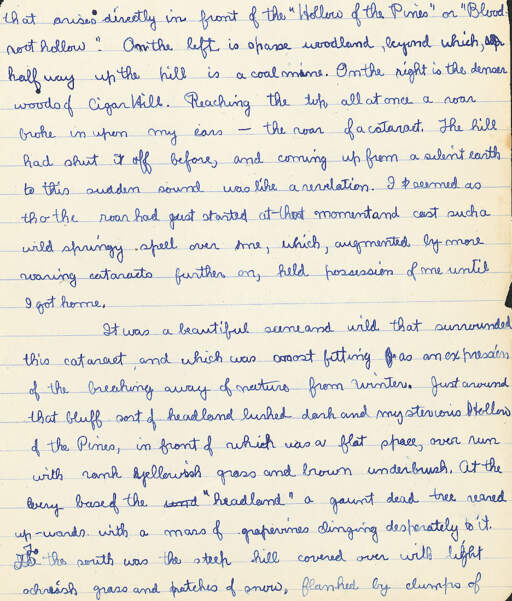 that arises directly in front of the "Hollow of the Pines" or "Blood-
root hollow". On the left is sparse woodland, beyond which,
half way up the hill is a coal mine. On the right is the denser
woods of Cigar Hill. Reaching the top all at once a roar
broke in upon my ears — the roar of a cataract. The hill
had shut it off before, and coming up from a silent earth
to this sudden sound was like a revelation. It seemed as
tho the roar had just started at that moment and cast such a
wild springy spell over me, which, augmented by more
roaring cataracts further on, held possession of me until
I got home.
It was a beautiful scene and wild that surrounded
this cataract, and which was most fitting as an expression
of the breaking away of nature from winter. Just around
that bluff sort of headland lurked dark and mysterious Hollow
of the Pines, in front of which was a flat space, over run
with rank yellowish grass and brown underbrush. At the
very base of the "headland" a gaunt dead tree reared
up-wards with a mass of grapevines clinging desperately to it.
To the south was the steep hill covered over with light
grass and patches of snow, flanked by clumps of